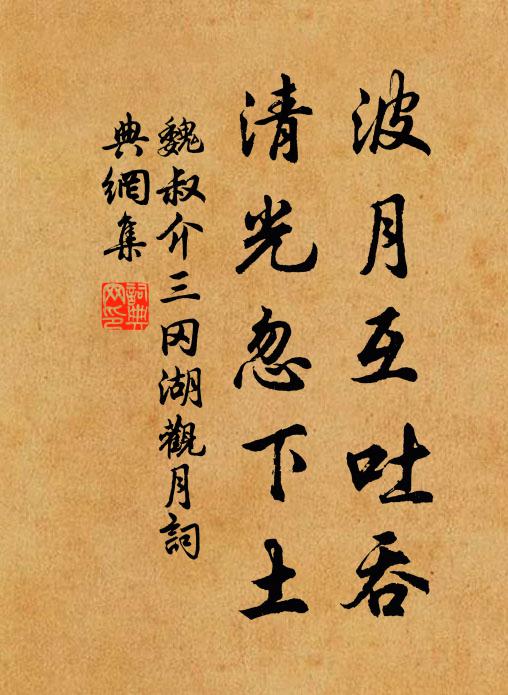 波月互吐吞
清光忽下土
魏叔介三冈湖觀月詞
典網集
詞典網印